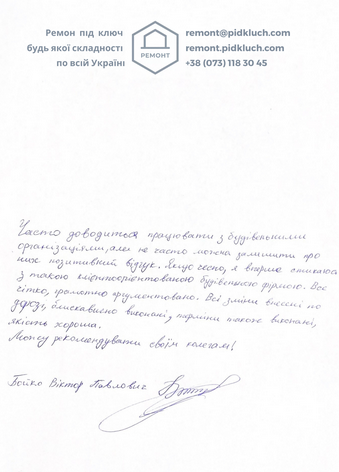 Ремон під ключ
будь якої складності
по всій Україні
РЕМОНТ
remont@pidkluch.com
remont.pidkluch.com
+38 (073) 118 30 45
Часто доводиться працювати з будівельними
організаціями, але не часто можна залишити про
них позитивний відгук. Якщо чесно, я вперше
з такою клієнтоорієнтованою будівельною фірмою. Все
чітко, грамотно аргументовано. Всі зміни внесені по
дорозі, блискавично виконані, терміни також виконані,
якість хороша.
Можу рекомендувати своїм колегам!
Бойко Віктор Павлович